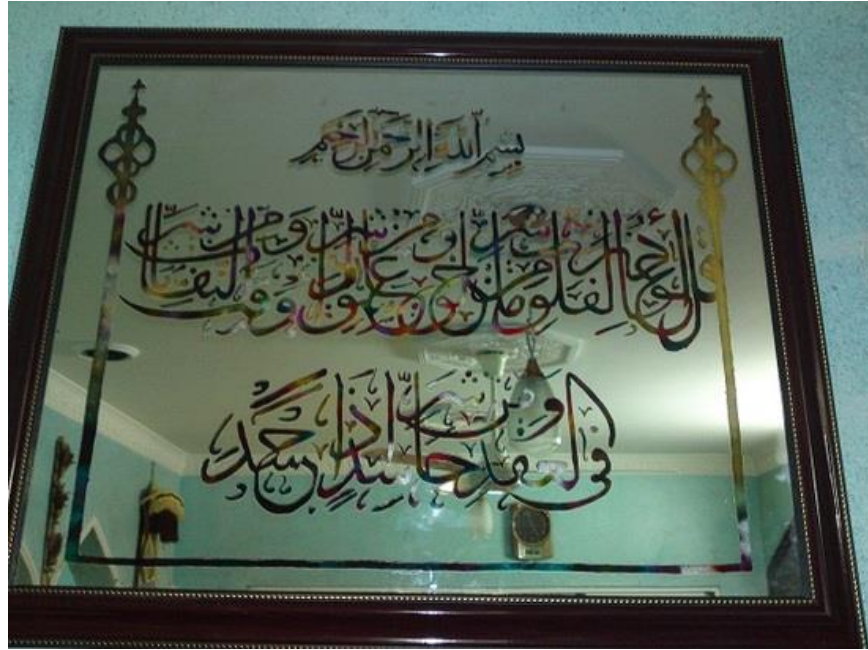 بسم الله الرحمن الرحيم
قل أعوذ برب الفلق من شر ما خلق ومن شر غاسق إذا وقب ومن شر النفاثات
في العقد ومن شر حاسد إذا حسد